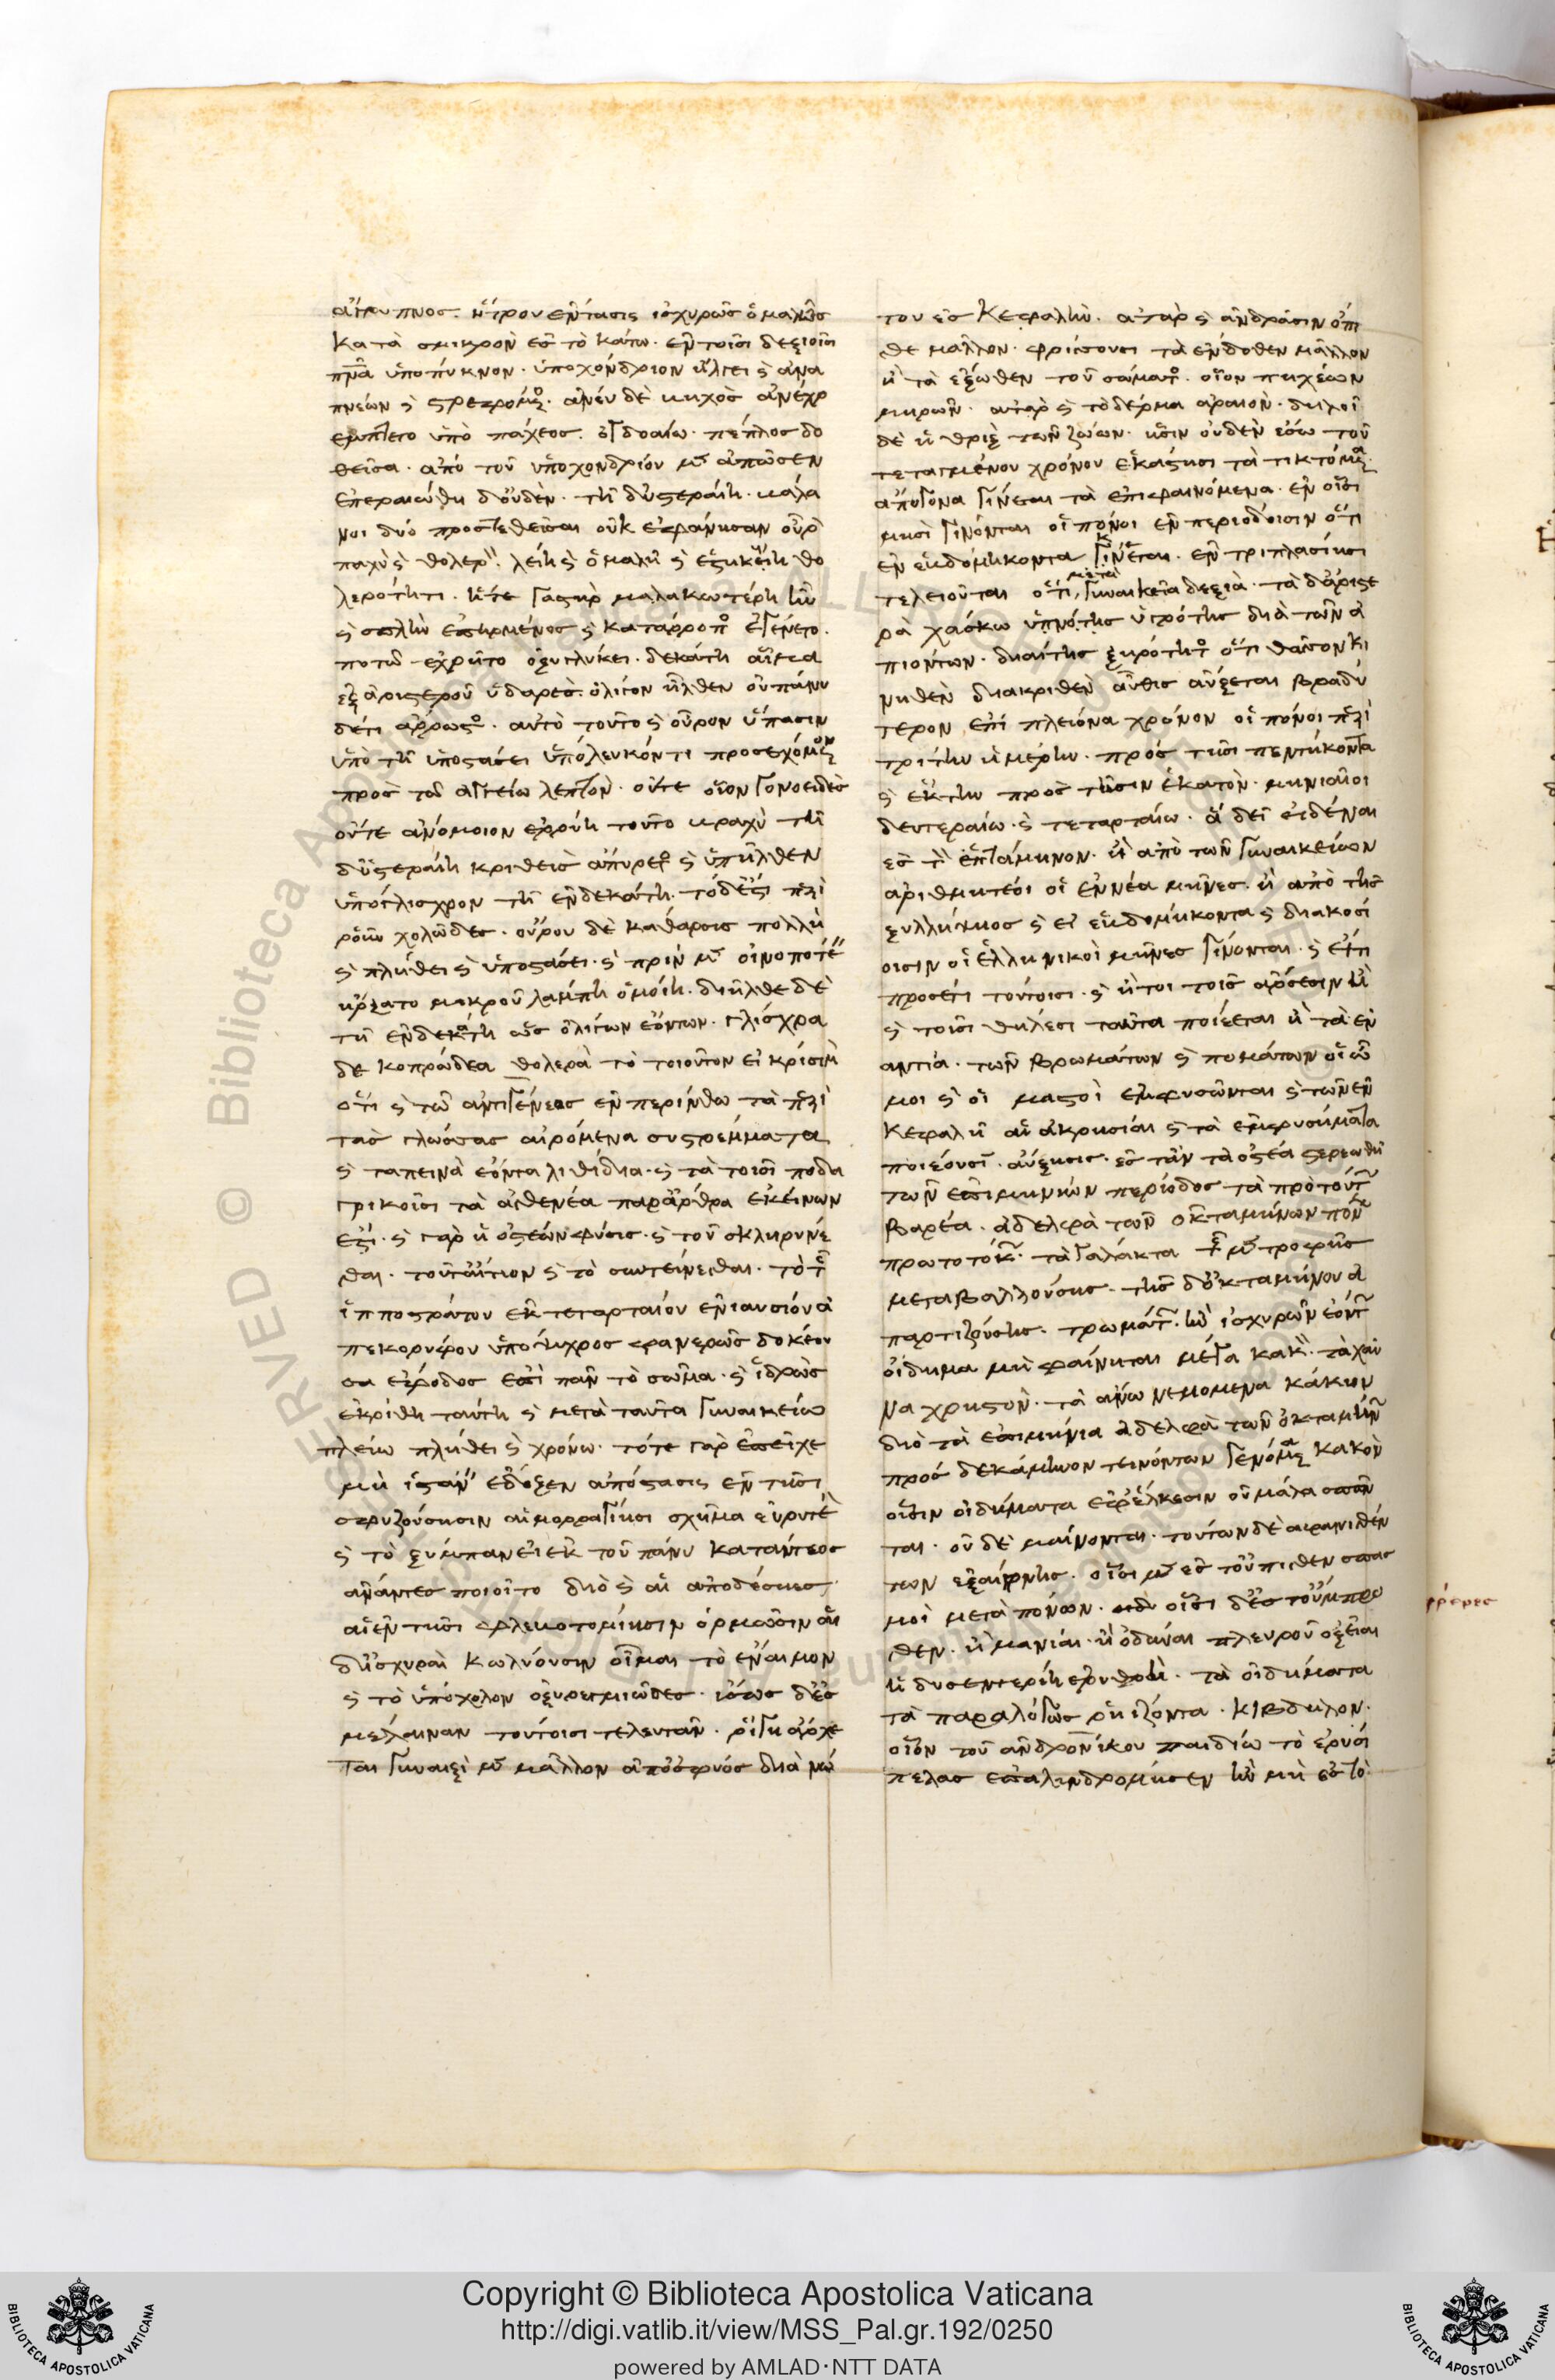 ἄγρυπνος. ἤτρου ἔντασις ἰσχυρῶς ὁμαλῶς
κατὰ σμικρὸν ἐς τὸ κάτω. ἐν τοῖσι δεξιοῖσι
πνᾶ ὑπόπυκνον. ὑποχόνδριον ἤλγει ϗ ἀνα
πνέων ϗ στρεφομ. ἄνευ δὲ
ὑπὸ πάχεος. ὀγδοαίω. πέπλος δο
θεῖσα. ἀπὸ τοῦ ὑποχονδρίου μὲν ἀπῶσεν
ἐπεραιώθη δ οὐδέν. τῆ δ ὑστεραίη. κάλα
μοι δύο προστεθεῖσαι οὐκ ἐφάνησαν οὖρ
παχὺ ϗ θολερ. λείη ϗ ὁμαλῆ ϗ θο
λερότητι. ἥτε γαστὴρ μαλακωτέρη ἦν
ϗ σπλὴν ἐπηρμένος ϗ κατάρροπο ἐγένετο.
ποτῶ ἐχρῆτο ὀξυγλύκει. δεκάτη αἷμα
ἐξ ἀριστεροῦ ὑδαρὲς ὀλίγον ἦλθεν οὐ πάνυ
δέτι αὐτὸ τοῦτο ϗ οὖρον ὕπεστιν
ὑπὸ τῆ ὑποστάσει ὑπόλευκόν τι προσεχόμ
πρὸς τῶ ἀγγείω λεπτόν. οὔτε οἷον γονοειδὲς
οὔτε ἀνόμοιον ἐρρύη τοῦτο βραχὺ τῆ
δ ὑστεραίη κριθεὶς ἀπύρετο ϗ ὑπῆλθεν
ὑπόγλισχρον τῆ ἑνδεκάτη. τὸ δ ἔστι περὶ
ῥόον χολῶδες. οὔρου δὲ κάθαρσις πολλὴ
ϗ πλήθει ϗ ὑποστάσει. ϗ πρὶν μὲν οἰνοποτέ
ἤρξατο μικροῦ λάμπη ὁμοίη. διῆλθε δὲ
τῆ ἑνδεκάτη ὡς ὀλίγων ἐόντων. γλίσχρα
δὲ κοπρώδεα θολερὰ τὸ τοιοῦτον εἰ κρίσιμ
ὅτι ϗ τῶ ἀντιγένεος ἐν περίνθω τὰ περὶ
τὰς γλώσσας αἰρόμενα συστρέμματα
ϗ ταπεινὰ ἐόντα λιθίδια. ϗ τὰ τοῖσι ποδα
γρικοῖσι τὰ ἀσθενέα παρ ἄρθρα ἐκείνων
ἐστὶ. ϗ γὰρ ἡ ὀστέων φύσις. ϗ τοῦ σκληρύνε
σθαι. τοῦτ αἴτιον ϗ τὸ συντείνεσθαι. τὸ τ
ἱπποστράτου ἐκ τεταρταίου ἐνιαυσίου ἀ
πεκορυφου ὑπόψυχρος φανερῶς δοκέου
σα ἔφοδος ἐπὶ πᾶν τὸ σῶμα. ϗ ἱδρὼς
ἐκρίθη ταύτη ϗ μετὰ ταῦτα γυναικεῖα
πλείω πλήθει ϗ χρόνω. τότε γὰρ ἐπεῖχε
μὴ ἱσταν ἔδοξεν ἀπόστασις ἐν τῆσι
σφυζούσησιν αἱμορραγίησι σχῆμα εὑρητέ
ϗ τὸ ξύμπαν εἰ ἐκ τοῦ πάνυ κατάντεος
ἄναντες ποιοῖτο διὸ ϗ αἱ ἀποδέσιες
αἱ ἐν τῆσι φλεβοτομίησιν ὁρμῶσιν αἱ
δ ἰσχυραὶ κωλύουσιν οἶμαι τὸ ἔναιμον
ϗ τὸ ὑπόχολον ὀξυρεγμιῶδες. ἴσως δ ἐς
μέλαιναν τούτοισι τελευτᾶν. ῥῖγη ἄρχε
ται γυναιξὶ μὲν μᾶλλον ἀπ ὀσφύος διὰ νώ
του ἐς κεφαλήν. ἀτὰρ ϗ ἀνδράσιν ὄπι
σθε μᾶλλον. φρίσσουσι τὰ ἔνδοθεν μᾶλλον
ἢ τὰ ἔξωθεν τοῦ σώματο. οἷον πηχέων
μηρῶν. ἀτὰρ ϗ τὸ δέρμα ἀραιόν. δηλοῖ
δὲ ἡ θρὶξ τῶν ζώων. ἧσιν οὐδὲν εἴσω τοῦ
τεταγμένου χρόνου ἑκάστησι τὰ τικτόμ
ἀπόγονα γίνεται τὰ ἐπιφαινόμενα. ἐν οἷσι
μησὶ γίνονται οἱ πόνοι ἐν περιόδοισιν ὅτι
ἐν ἑβδομήκοντα κινέεται. ἐν τριπλασίησι
τελειοῦται ὅτι μετὰ γυναικεῖα δεξιὰ. τὰ δ ἀριστε
ρὰ χάσκω ὑγρότης διὰ τῶν ἀ
πιόντων. διαίτης ξηρότητο ὅτι θᾶσσον κι
νηθὲν διακριθὲν αὖθις αὔξεται βραδύ
τερον ἐπὶ πλείονα χρόνον οἱ πόνοι περὶ
τρίτην ἡμέρην. πρὸς τῆσι πεντήκοντα
ϗ ἕκτην πρὸς τῆσιν ἑκατὸν. μηνιαῖοι
δευτεραίω. ϗ τεταρταίω. ἃ δεῖ εἰδέναι
ἐς τὴν ἑπτάμηνον. ἢ ἀπὸ τῶν γυναικείων
ἀριθμητέοι οἱ ἐννέα μῆνες. ἢ ἀπὸ τῆς
ξυλλήψιος ϗ εἰ ἑβδομήκοντα ϗ διακοσί
οισιν οἱ ἑλληνικοὶ μῆνες γίνονται. ϗ ἔτι
προσέτι τούτοισι. ϗ ἤτοι τοῖς ἄρσεσιν ἢ
ϗ τοῖσι θήλεσι ταῦτα ποιέεται ἢ τὰ ἐν
αντία. τῶν βρωμάτων ϗ πομάτων οἱ ὦ
μοι ϗ οἱ μαστοὶ ἐμφυσῶνται ϗ τῶν ἐν
κεφαλῆ αἱ ἀκρησίαι ϗ τὰ ἐμφυσήματα
ποιέουσι. αὔξησις. ἐς τὰν τὰ ὀστέα στερεωθῆ
τῶν ἐπιμηνίων περίοδος τὰ πρὸ τούτ
βαρέα. ἀδελφὰ τῶν ὀκταμήνων πόν
πρωτοτόκ. τὰ γάλακτα τῆς μὲν τροφῆς
μεταβαλλούσης. τῆς δ ὀκταμήνου ἀ
παρτιζούσης. τρωμάτ. ἢν ἰσχυρῶν ἐόντ
οἴδημα μὴ φαίνηται μέγα κακ. τὰ χαῦ
να χρηστὸν. τὰ ἄνω νεμόμενα κάκιον
διὸ τὰ ἐπιμήνια ἀδελφὰ τῶν ὀκταμήν
πρὸς δεκάμηνον τεινόντων γενόμ κακὸν
οἷσιν οἰδήματα ἐφ ἕλκεσιν οὐ μάλα σπῶν
ται. οὐδὲ μαίνονται. τούτων δὲ ἀφανισθέν
των ἐξαίφνης. οἷσι μὲν ἐς τοὔπισθεν σπασ
μοὶ μετὰ πόνων. οἷσι δ ἐς τοὔμπρο
σθεν. ἢ μανίαι. ἢ ὀδύναι πλευροῦ ὀξεῖαι
ἢ δυσεντερίη ἐρυθρὴ. τὰ οἰδήματα
τὰ παραλόγως ῥηίζοντα. κίβδηλον.
οἷον τοῦ ἀνδρονίκου παιδίω τὸ ἐρυσί
πελας ἐπαλινδρόμησεν ἢν μὴ ἐς τὸ
Copyright © Biblioteca Apostolica Vaticana
http://digi.vatlib.it/view/MSS_Pal.gr.192/0250
powered by AMLAD·NTT DATA